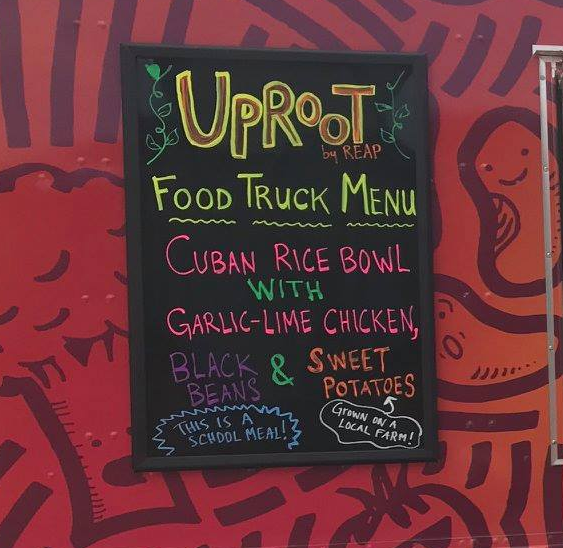 UPROOT
by REAP
FOOD TRUCK MENU
CUBAN RICE BOWL
WITH
GARLIC-LIME CHICKEN,
BLACK BEANS & SWEET POTATOES
THIS IS A
SCHOOL MEAL!
GROWN ON A
LOCAL FARM!